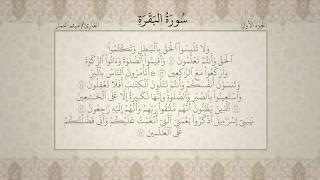 الجزء الأول
سُورَةُ البَقَرَةِ
وَلَا تَلْبِسُوا۟ ٱلْحَقَّ بِٱلْبَٰطِلِ وَتَكْتُمُوا۟
ٱلْحَقَّ وَأَنتُمْ تَعْلَمُونَ ۝ وَأَقِيمُوا۟ ٱلصَّلَوٰةَ وَءَاتُوا۟ ٱلزَّكَوٰةَ
وَٱرْكَعُوا۟ مَعَ ٱلرَّٰكِعِينَ ۝ أَتَأْمُرُونَ ٱلنَّاسَ بِٱلْبِرِّ
وَتَنسَوْنَ أَنفُسَكُمْ وَأَنتُمْ تَتْلُونَ ٱلْكِتَٰبَ أَفَلَا تَعْقِلُونَ ۝
وَٱسْتَعِينُوا۟ بِٱلصَّبْرِ وَٱلصَّلَوٰةِ وَإِنَّهَا لَكَبِيرَةٌ إِلَّا عَلَى ٱلْخَٰشِعِينَ
۝ ٱلَّذِينَ يَظُنُّونَ أَنَّهُم مُّلَٰقُوا۟ رَبِّهِمْ وَأَنَّهُمْ إِلَيْهِ رَٰجِعُونَ ۝
يَٰبَنِىٓ إِسْرَٰٓءِيلَ ٱذْكُرُوا۟ نِعْمَتِىَ ٱلَّتِىٓ أَنْعَمْتُ عَلَيْكُمْ وَأَنِّى فَضَّلْتُكُمْ
عَلَى ٱلْعَٰلَمِينَ ۝